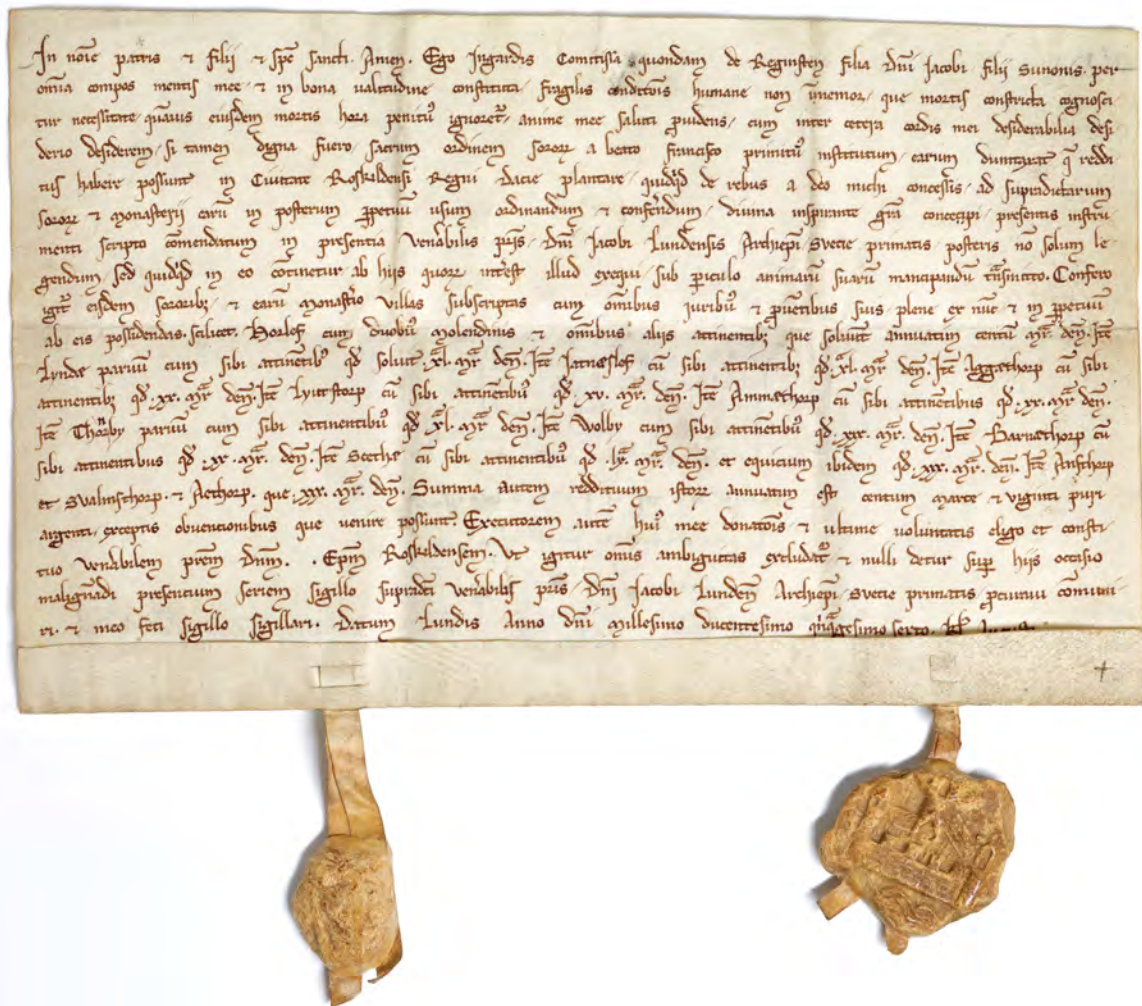 In nōie patris ⁊ filii ⁊ sp̄c sancti. Amen. Ego Ingardis Comitissa quondam de Reginsten filia Dn̄i Jacobi filii Sunonis. per
om̄ia compos mentis mee ⁊ in bona ualitudine constituta fragilis conditōis humane non īmemor, que mortis constricta cognosci
tur necessitate, quāuis eiusdem mortis hora penitꝰ ignoret̄, anime mee saluti ꝓuidens, cum inter cetera cordis mei desiderabilia desi
derio desiderem, si tamen digna fuero, sacrum ordinem soroꝝ a beato francisco primitꝰ institutum, earum dumtaxat q̄ reddi
tus habere possunt in Ciuitate Roskildensi Regni Dacie plantare, quidq̄d de rebus a deo michi concessis, ad supradictarum
soroꝝ ⁊ monasterij earū in posterum ꝑpetuū usum ordinandum ⁊ conferēdum, diuina inspirante grā concepi, presentis instru
menti scripto cōmendatum in presentia Ven̄abilis pr̄is, Dn̄i Jacobi Lundensis Archiep̄i Svetie primatis, posteris nō solum le
gendum, sed quidq̄d in eo cōtinetur ab hijs quoꝝ int̄est illud exequi, sub ꝑiculo animarū suarū mancipandū tn̄smitto. Confero
igit̄ eisdem sororibꝫ, ⁊ earū monastīo Villas subscriptas cum om̄ibus iuribꝰ ⁊ ꝓuētibus suis plene ex nūc ⁊ in ꝑpetuū
ab eis possidendas. scilicet. Horlef cum duobꝰ molendinis ⁊ om̄ibus alijs attinentibꝫ que soluūt annuatim centū mr̄. den̄. Itē
Lyndæ paruū cum sibi attinētibꝰ qd̄ soluit .xl. mr̄ den̄. Itē Jatnæslef cū sibi attinentibꝫ qd̄ .xl. mr̄ den̄. Itē Aggæthorp cū sibi
attinentibꝫ qd̄ .xx. mr̄ den̄. Itē Lyutstorp cū sibi attinētibꝰ qd̄ .xv. mr̄ den̄. Itē Ammæthorp cū sibi attinētibus qd̄ .xx. mr̄ den̄.
Itē Thornby paruū cum sibi attinentibꝰ qd̄ .xl. mr̄ den̄. Itē Wolby cum sibi attinētibꝰ qd̄ .xix. mr̄. den̄. Itē Barnæthorp cū
sibi attinentibus qd̄ .xx. mr̄. den̄. Itē Scethe cū sibi attinentibꝰ qd̄ .lx. mr̄. den̄. et equicium ibidem qd̄ .xxx. mr̄. den̄. Itē Ansthorp
et Svalmsthorp. ⁊ Aethorp. que .xxx. mr̄. den̄. Summa autem reddituum istoꝝ annuatim est centum marce ⁊ viginti puri
argenti, exceptis obuentionibus que uenire possunt. Executorem autē huiꝰ mee donatōis ⁊ ultime uoluntatis eligo et consti
tuo Ven̄abilem prēm Dn̄m. . Ep̄m Roskildensem. Vt igitur om̄is ambiguitas excludat̄ ⁊ nulli detur suꝑ hijs occasio
malignādi presentium seriem sigillo supradc̄i ven̄abilis pr̄is, Dn̄i Jacobi Lunden̄ Archiep̄i Svetie primatis ꝓcuraui cōmuni
ri. ⁊ meo feci sigillo sigillari. Datum Lundis Anno Dn̄i Millesimo ducentesimo qn̄qͣgesimo sexto.